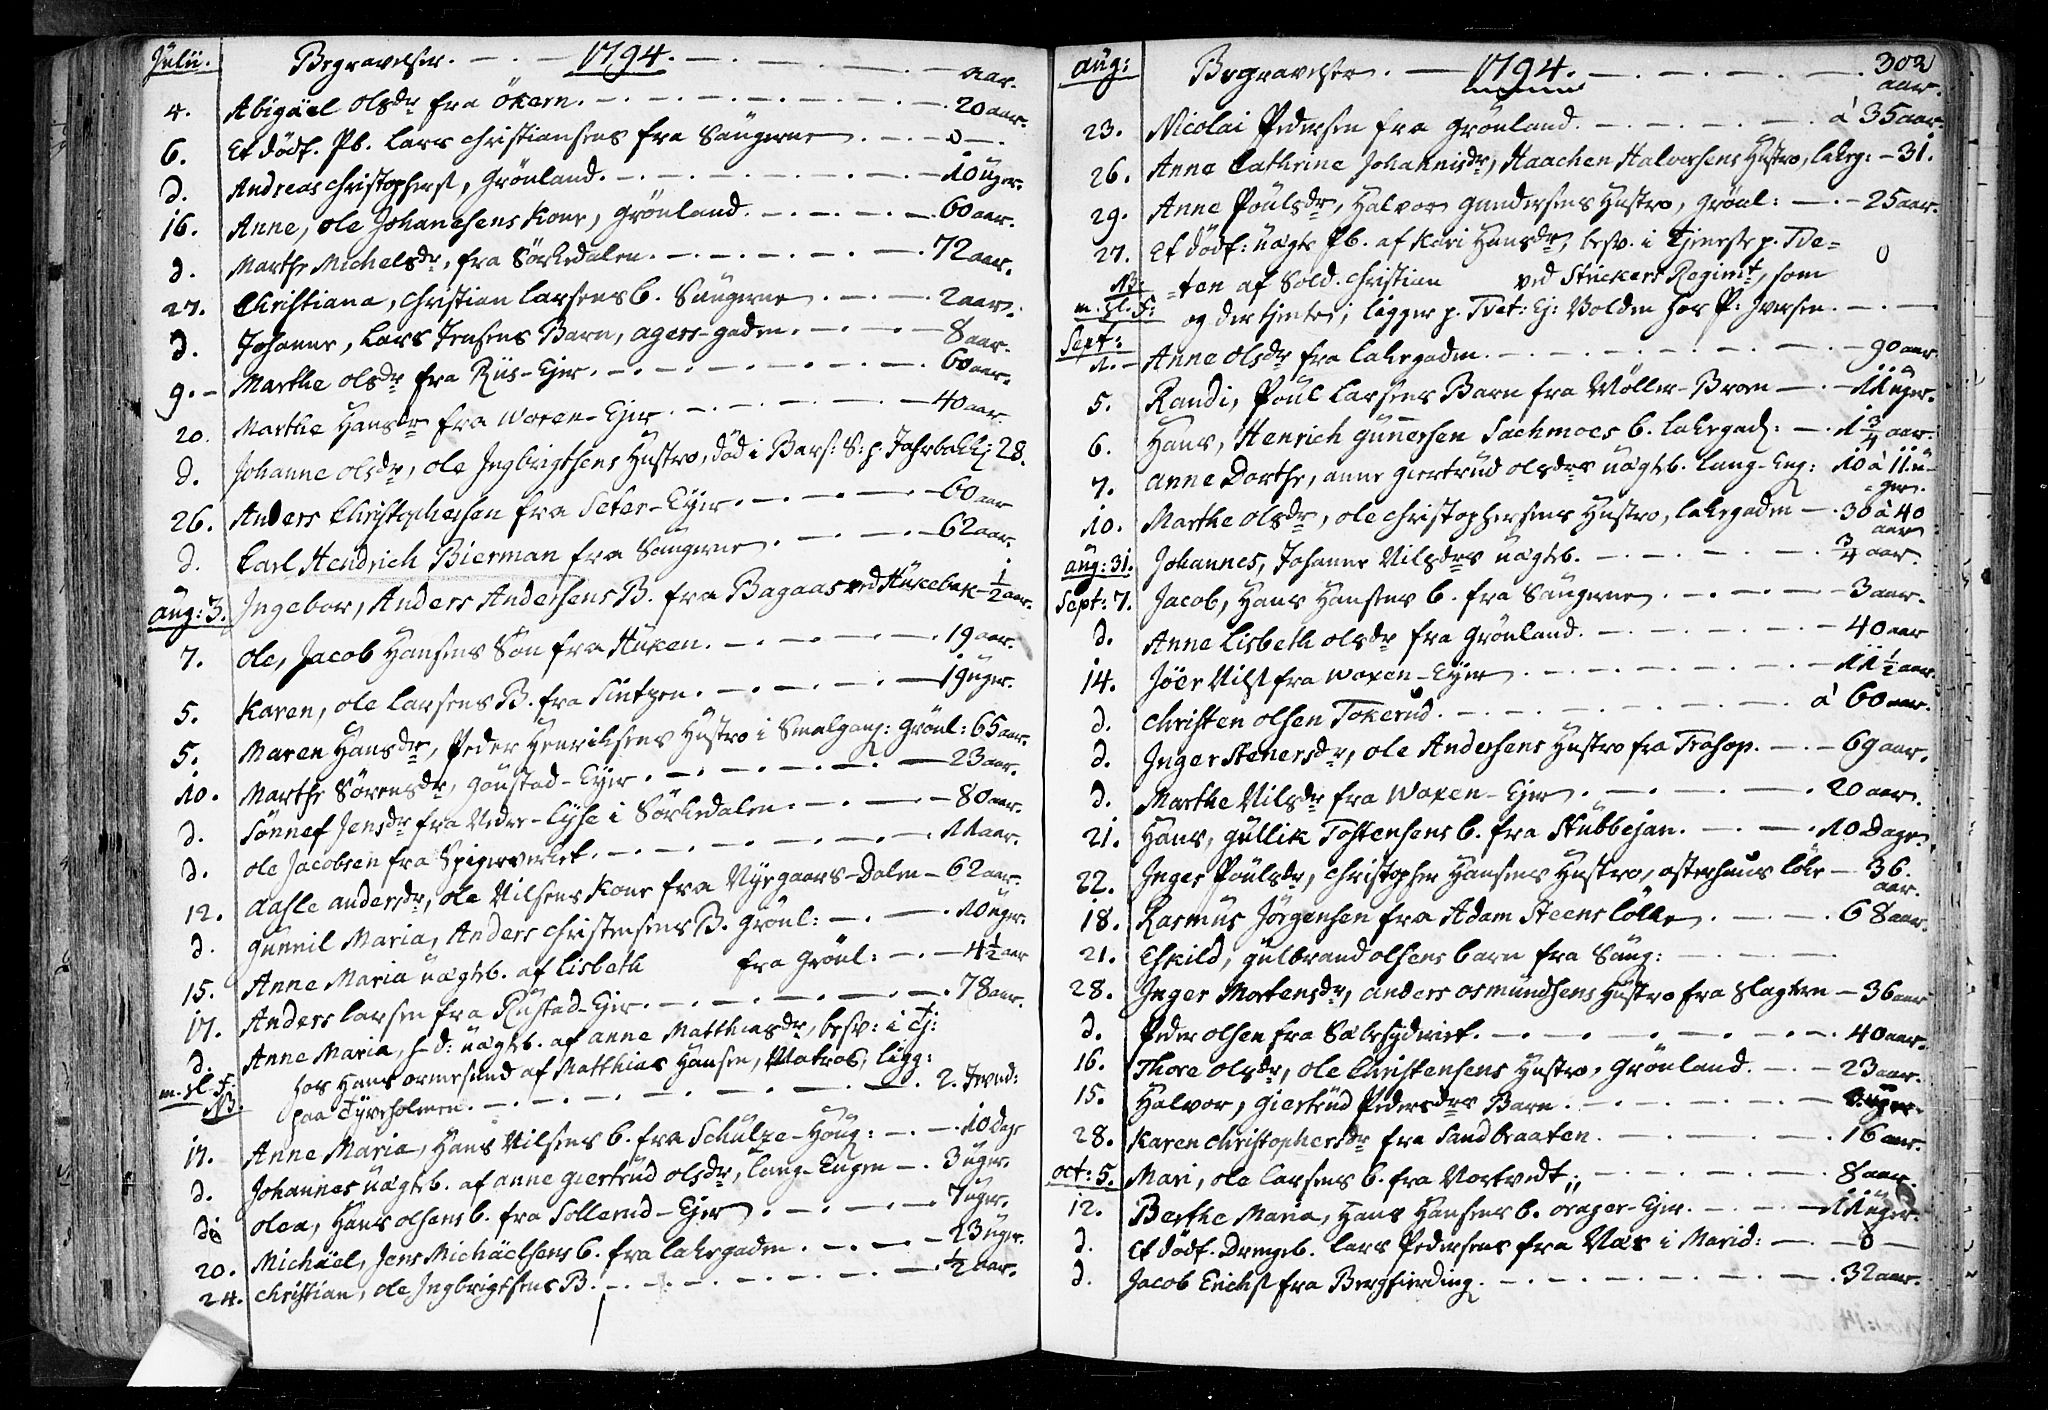 Julii. Begravelser. 1794. aar.
4. Abigäel olsdr fra Ökern. 20 aar.
6. Et dödf. Pb. Lars Christiansens fra Saugerne 0
d. Andreas Christophers:, Grönland. 10 uger.
16. Anne, ole Johanesens Kone, Grönland. 60 aar.
d. Marthe Michelsdr, fra Sörkedalen. 72 aar.
27. Christiana, Christian Larsens b. Saugerne 2 aar.
d. Johanne, Lars Jensens Barn, agers-gaden. 8 aar.
9. Marthe olsdr fra Riis-Ejer. 60 aar.
20. Marthe Hansdr fra Woxen-Ejer 40 aar.
d. Johanne olsdr, ole Ingbrigthsens Hustro, död i Bars: S: 28.
26. Anders Christophersen fra Seter-Eyer 60 aar
d. Carl Hendrich Bierman fra Saugerne 62 aar.
aug: 3. Ingebor, Anders Andersens B. fra Bagaas ved Huxebak 1/2 aar.
7. ole, Jacob Hansens Sön fra Huken. 19 aar.
5. Karen, ole Larsens B. fra Sintzen. 19 uger.
5. Maren Hansdr, Peder Henriksens Hustro i Smalgang: Grönl: 65 aar.
10. Marthe Sörensdr, Goustad-Eyer. 23 aar.
d. Sönnef Jensdr fra Nedre-Lyse i Sörkedalen. 80 aar.
d. ole Jacobsen fra Spigerverket. 11 aar.
12. Aasle andersdr, ole Nilsens Kone fra Nyegaars-Dalen 62 aar.
d. Gunnil Maria, Anders Christensens B. Grönl: 10 uger.
15. Anne Maria uägteb. af Lisbeth fra Grönl: 4 1/2 aar
17. Anders Larsen fra Rustad-Ejer. 78 aar.
d. Anne Maria, f-d: uägteb. af anne Matthiasdr, besv: i Tj:
m. Sl. F: hos Hans ormesund af Matthias Hansen, Matros, ligg:
NB. paa Tyveholmen. 2. Jvnd:
17. Anne Maria, Hans Nilsens b. fra Schulze-Houg: 10 dage
d. Johannes uägteb. af anne giertrud olsdr, Lang-Engen 3 uger.
d. olea, Hans olsens b. fra Sollerud-Ejer 7 uger.
20. Michäel, Jens Michäelsens b. fra Lakegaden. 23 uger.
24. Christian, ole Ingbrigtsens B. 1/2 aar.
aug: Begravelser. 1794. 302
aar.
23. Nicolai Pedersen fra Grönland. à 35 aar.
26. Anne Cathrine Johannisdr, Haachen Halversens Hustro, Lakeg: 31.
29. Anne Poulsdr, Halvor Gundersens Hustro, Grönl: 25 aar.
27. Et dödf: uägte Pb. af Kari Hansdr, besv. i Tjeneste p. Tve=
NB. =ten af Sold. Christian ved Strickers Regimt, som 0
m. Sl. F: og der tjente, ligger p. Tvet: Ej: Volden hos P: Iversen.
Sept:
1. Anne olsdr fra Lakegaden. 90 aar.
5. Randi, Poul Larsens Barn fra Möller-Broen 11 uger.
6. Hans, Henrich Gunersen Sachmoes b. Lakegad: 1 3/4 aar.
7. Anne Dorthe, anne giertrud olsdrs uägteb. Lang-Eng: 10 à 11. u-
=ger.
10. Marthe olsdr, ole Christophersens Hustro, Lakegaden 30 à 40
aar
aug: 31. Johannes, Johanne Nilsdrs uägteb. 3/4 aar.
Sept: 7. Jacob, Hans Hansens b. fra Saugerne 3 aar.
d. Anne Lisbeth olsdr fra Grönland. 40 aar
14. Jöer Nils: fra Woxen-Eyer 11 1/2 aar.
d. Christen olsen Tokerud. à 60 aar.
d. Inger Stenersdr, ole Andersens Hustro fra Trosop. 69 aar.
d. Marthe Nilsdr fra Woxen-Ejer 20 aar.
21. Hans, Gullik Tostensens b. fra Stubbejan. 10 Dage
22. Inger Poulsdr, Christopher Hansens Hustro, osterhaus löke 36.
aar.
18. Rasmus Jörgensen fra Adam Steens lökke. 68 aar.
21. Eskild, gulbrand olsens barn fra Saug:
28. Inger Mortensdr, anders osmundsens Hustro fra Slagtern 36 aar
d. Peder olsen fra Sabesyderiet. 40 aar.
16. Thore olsdr, ole Christensens Hustro, Grönland. 23 aar.
15. Halvor, Giertrud Pedersdrs Barn. uger.
28. Karen Christophersdr fra Sandbraaten. 16 aar.
oct: 5. Mari, ole Larsens b. fra Vortvedt 8 aar.
12. Berthe Maria, Hans Hansens b. oraper-Ejer 11 uger.
d. Et dödf. Drengeb. Lars Pedersens fra Næs i Marid: 0
d. Jacob Erichs: fra Bergfierding. 32 aar.